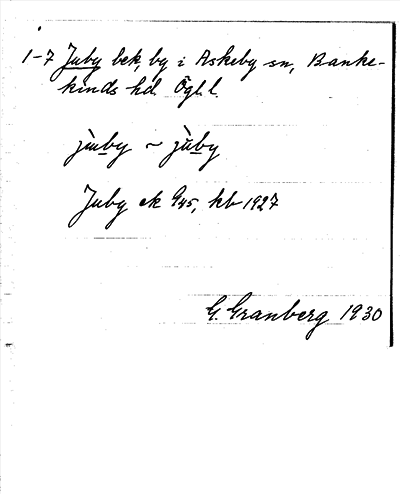 1-7 Juby bek, by i Askeby sn, Banke-
kinds hd. Ögl.
jùuby ~ jùby
Juby ek G45, kb 1927
G. Granberg 1930